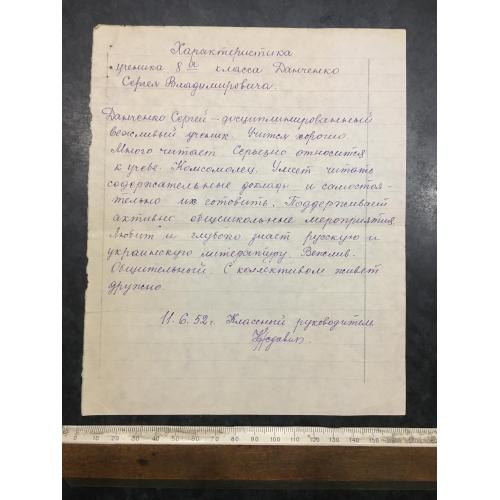 Характеристика
ученика 8 а класса Данченко
Сергея Владимировича.
Данченко Сергей – дисциплинированный
вежливый ученик. Учится хорошо
Много читает. Серьезно относится
к учебе. Комсомолец. Умеет читать
содержательные доклады и самостоя-
тельно их готовить. Поддерживает
активно общешкольные мероприятия
Любит и глубоко знает русскую и
украинскую литературу. Вежлив.
Общительный. С коллективом живет
дружно.
11.6.52 г. Классный руководитель
0 10 20 30 40 50 60 70 80 90 100 110 120 130 140 150